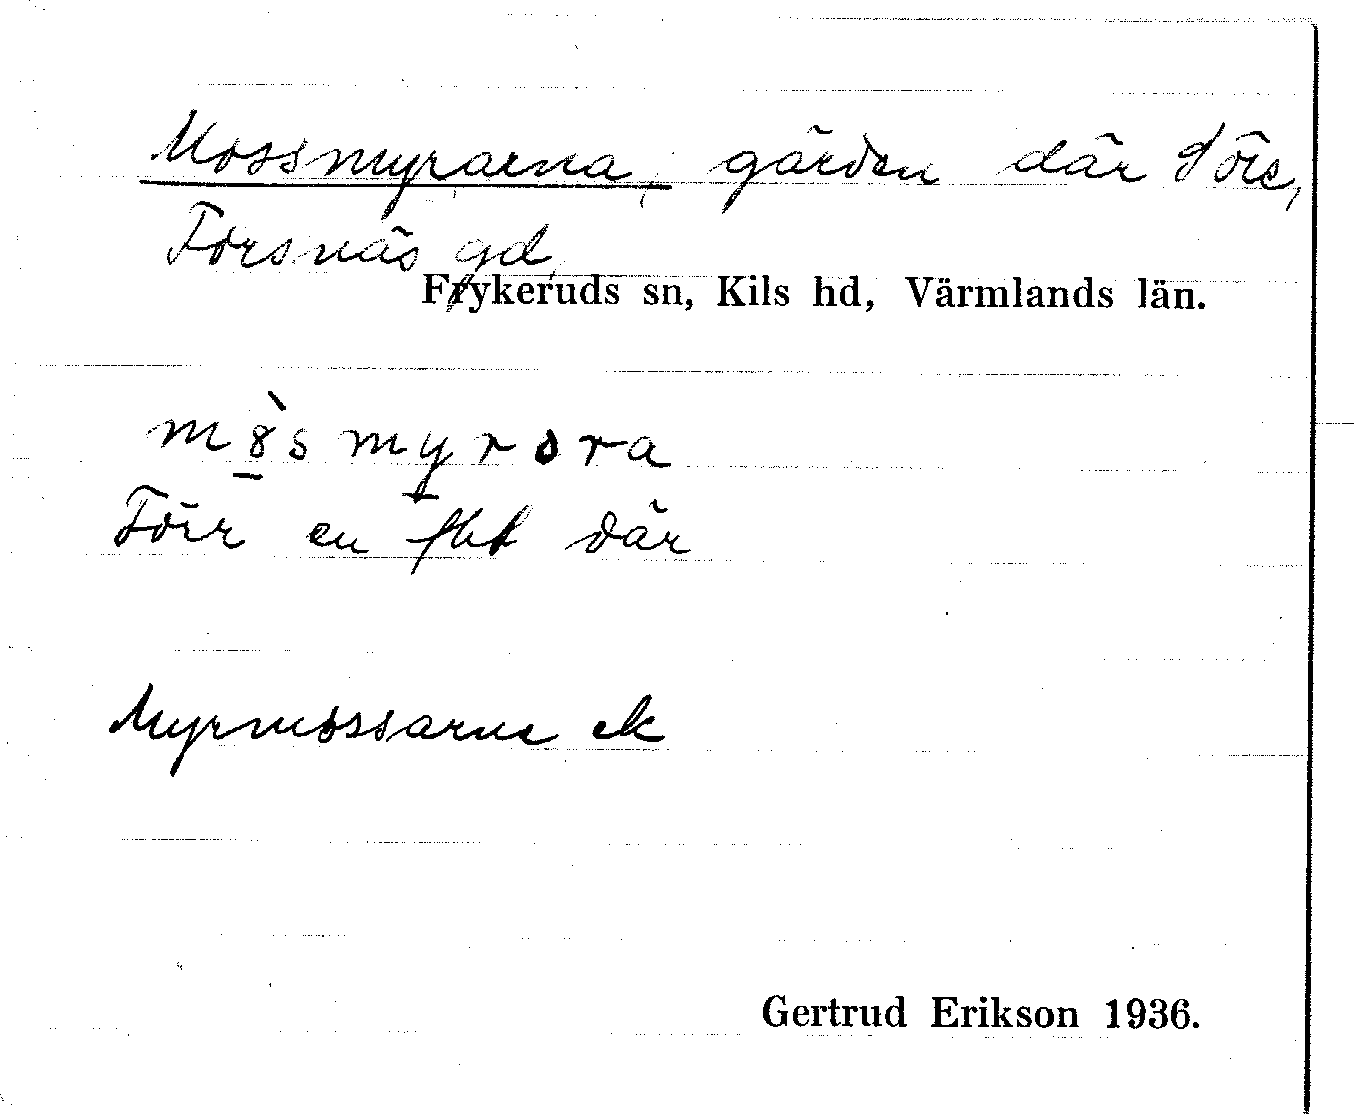 Mossmyrarna, gärden där
Forsnäs gd,
Frykeruds sn, Kils hd, Värmlands län.
mòsmyrora
Förr en där
Myrmossarne ek
Gertrud Erikson 1936.